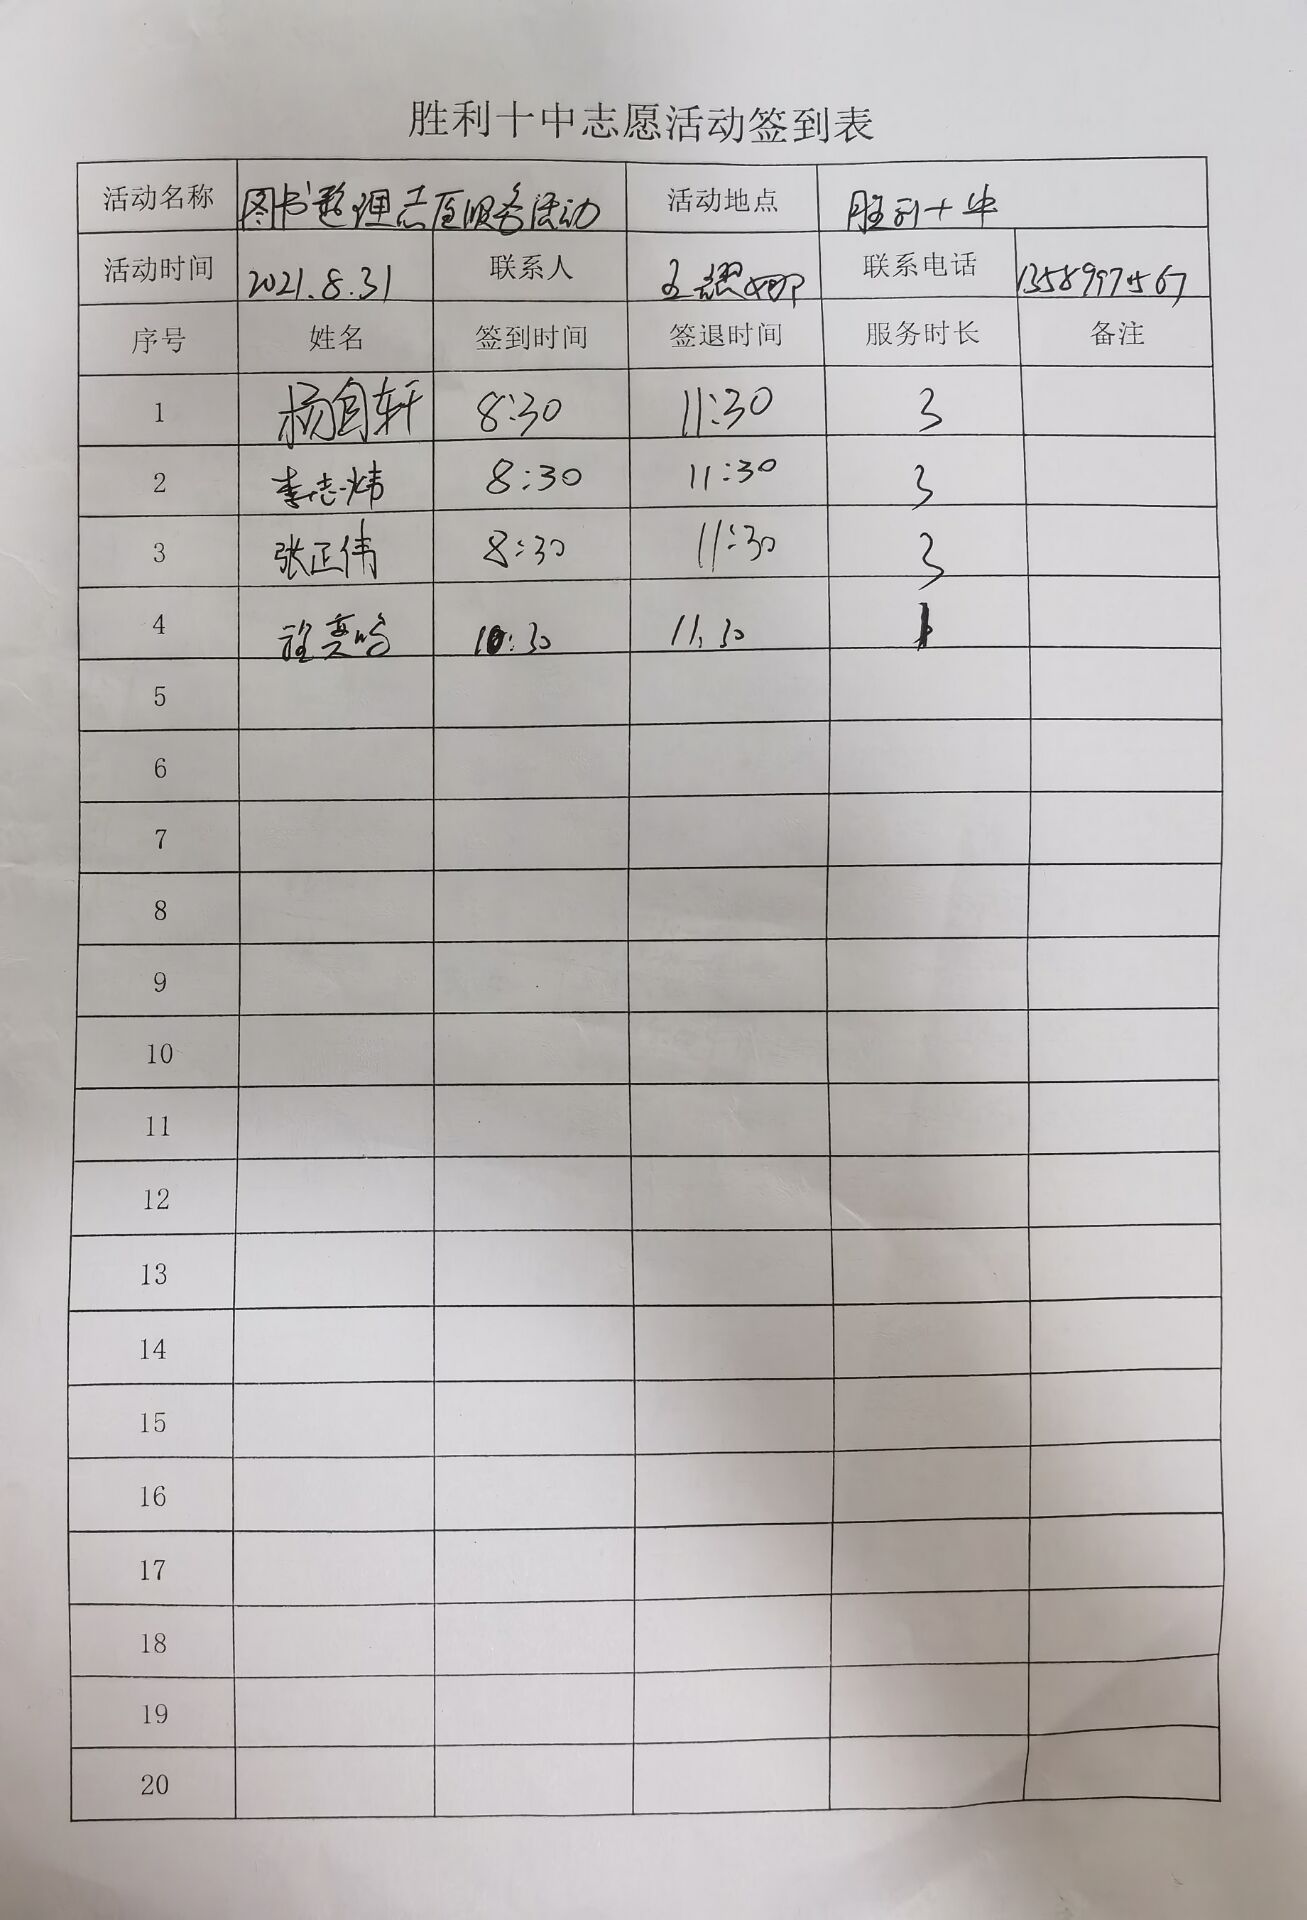 胜利十中志愿活动签到表
活动名称 图书整理志愿服务活动 活动地点 胜利十中
活动时间 2021.8.31 联系人 联系电话
序号 姓名 签到时间 签退时间 服务时长 备注
1 8:30 11:30 3
2 李志炜 8:30 11:30 3
3 张正伟 8:30 11:30 3
4 10:30 11:30 1
5
6
7
8
9
10
11
12
13
14
15
16
17
18
19
20